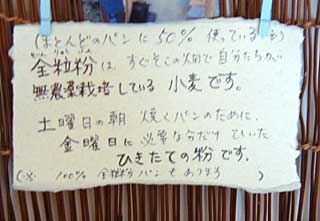 (ほとんどのパンに50% 使っている
ぜんりゅうふん
全粒粉は すぐそこの畑で自分たちが
無農薬栽培している 小麦です。
土曜日の朝 焼くパンのために、
金曜日に 必要な分だけ ひいた
ひきたての粉です。
(※ 100% 全粒粉パンもあります )